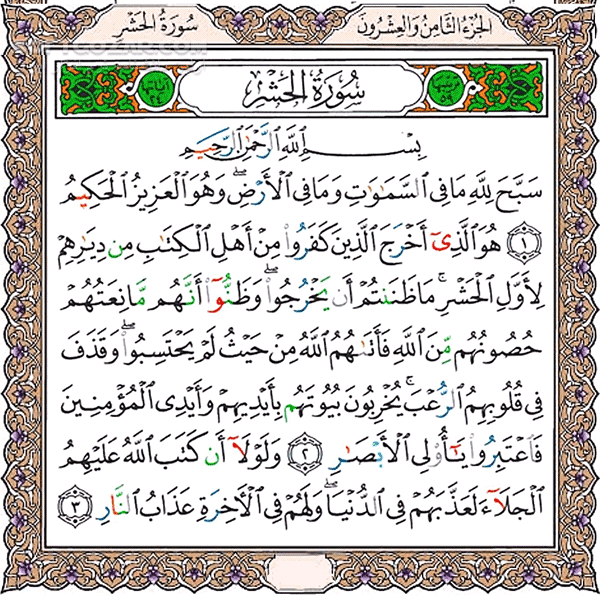 الجزء الثامن والعشرون
سورة الحشر
ترتيبها ٥٩
سُورَةُ الحَشْرِ
آياتها ٢٤
بِسْمِ ٱللَّهِ ٱلرَّحْمَٰنِ ٱلرَّحِيمِ
سَبَّحَ لِلَّهِ مَا فِى ٱلسَّمَٰوَٰتِ وَمَا فِى ٱلْأَرْضِ ۖ وَهُوَ ٱلْعَزِيزُ ٱلْحَكِيمُ
١ هُوَ ٱلَّذِىٓ أَخْرَجَ ٱلَّذِينَ كَفَرُوا۟ مِنْ أَهْلِ ٱلْكِتَٰبِ مِن دِيَٰرِهِمْ
لِأَوَّلِ ٱلْحَشْرِ ۚ مَا ظَنَنتُمْ أَن يَخْرُجُوا۟ ۖ وَظَنُّوٓا۟ أَنَّهُم مَّانِعَتُهُمْ
حُصُونُهُم مِّنَ ٱللَّهِ فَأَتَىٰهُمُ ٱللَّهُ مِنْ حَيْثُ لَمْ يَحْتَسِبُوا۟ ۖ وَقَذَفَ
فِى قُلُوبِهِمُ ٱلرُّعْبَ ۚ يُخْرِبُونَ بُيُوتَهُم بِأَيْدِيهِمْ وَأَيْدِى ٱلْمُؤْمِنِينَ
فَٱعْتَبِرُوا۟ يَٰٓأُو۟لِى ٱلْأَبْصَٰرِ ٢ وَلَوْلَآ أَن كَتَبَ ٱللَّهُ عَلَيْهِمُ
ٱلْجَلَآءَ لَعَذَّبَهُمْ فِى ٱلدُّنْيَا ۖ وَلَهُمْ فِى ٱلْءَاخِرَةِ عَذَابُ ٱلنَّارِ ٣